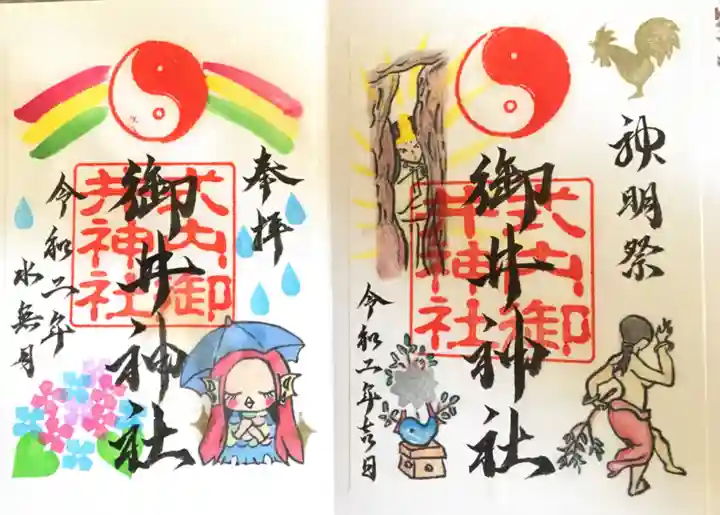 奉拝
御井神社
犬山御
井神社
令和二年
水無月
神明祭
御井神社
犬山御
井神社
令和二年吉日